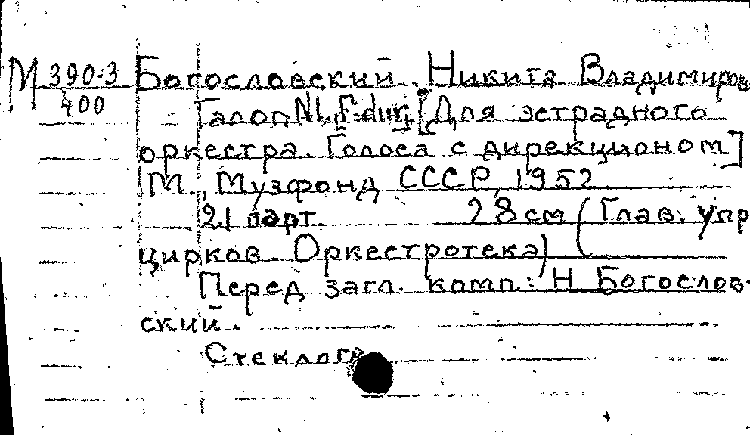 М 390-3 Богословский Никита Владимиров
400
Галоп №1, F-dur. [Для эстрадного
оркестра. Голоса с дирекционом]
М., Музфонд СССР, 1952.
21 парт. 28 см (Глав. упр
цирков. Оркестротека)
Перед загл. комп.: Н. Богослов-
ский.
Стеклогр